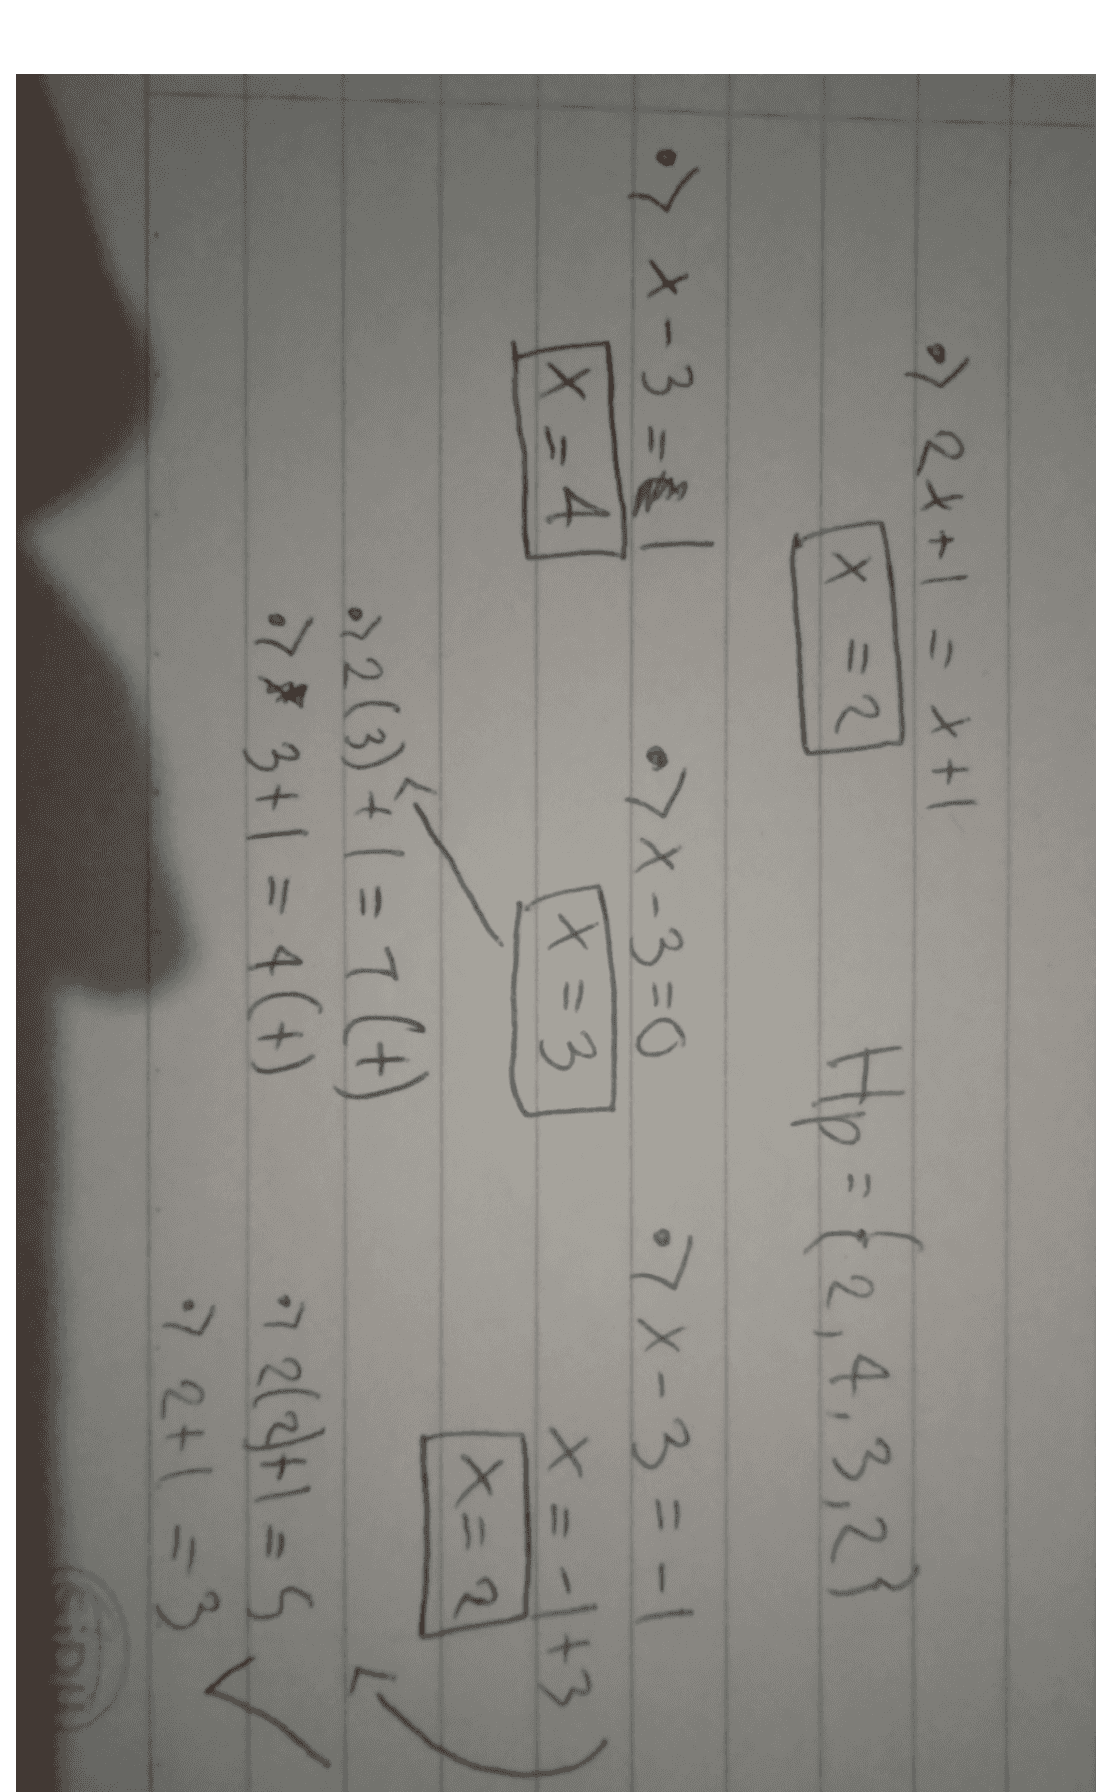 •> 2x+1 = x+1
x = 2
Hp = {2,4,3,2}
•> x-3= 1
x = 4
•> x-3=0
x = 3
•> x-3=-1
x = -1+3
x = 2
•> 2(3)+1=7(+)
•> 3+1=4(+)
•> 2(2)+1=5
•> 2+1=3
SIDU